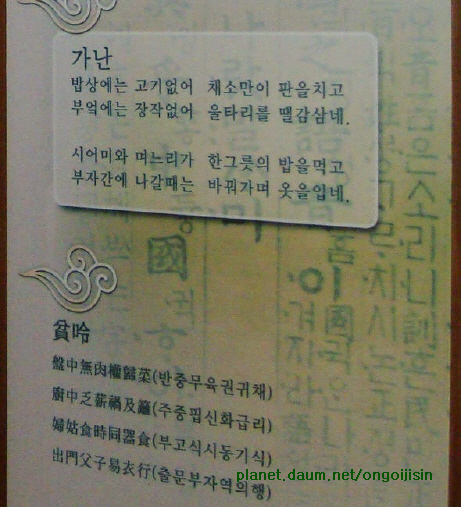 가난
밥상에는 고기없어 채소만이 판을치고
부엌에는 장작없어 울타리를 땔감삼네.
시어미와 며느리가 한그릇의 밥을먹고
부자간에 나갈때는 바꿔가며 옷을입네.
貧吟
盤中無肉權歸菜(반중무육권귀채)
廚中乏薪禍及籬(주중핍신화급리)
婦姑食時同器食(부고식시동기식)
出門父子易衣行(출문부자역의행)
planet.daum.net/ongoijisin